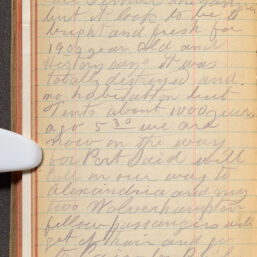 but it look to be a
bright and fresh for
1902 year old and
History says it was
totally destroyed and
no habitation but
Tents about 1000 years
ago 5 30 we are
now on the way
for Port Said will
call on our way to
Alexandria and my
two Wolverhampton
fellow passengers will
get off their and go